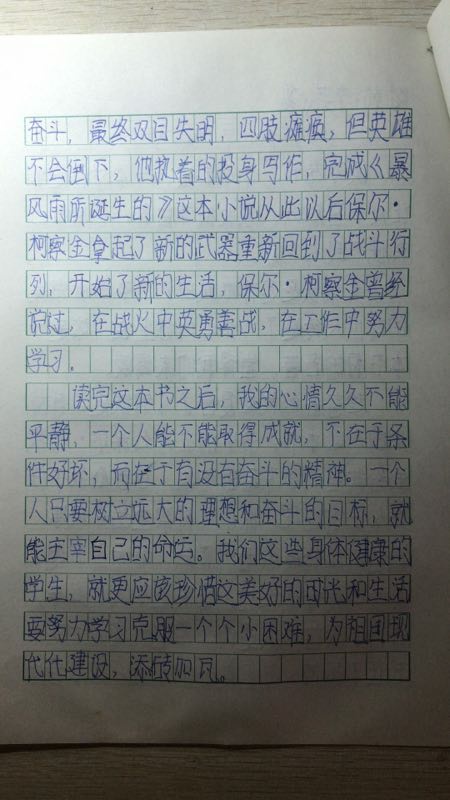 奋斗，最终双目失明，四肢瘫痪，但英雄
不会倒下，他执着的投身写作，完成《暴
风雨所诞生的》这本小说从此以后保尔·
柯察金拿起了新的武器重新回到了战斗行
列，开始了新的生活，保尔·柯察金曾经
说过，在战火中英勇善战，在工作中努力
学习。
读完这本书之后，我的心情久久不能
平静，一个人能不能取得成就，不在于条
件好坏，而在于有没有奋斗的精神。一个
人只要树立远大的理想和奋斗的目标，就
能主宰自己的命运。我们这些身体健康的
学生，就更应该珍惜这美好的时光和生活
要努力学习克服一个个小困难，为祖国现
代化建设，添砖加瓦。